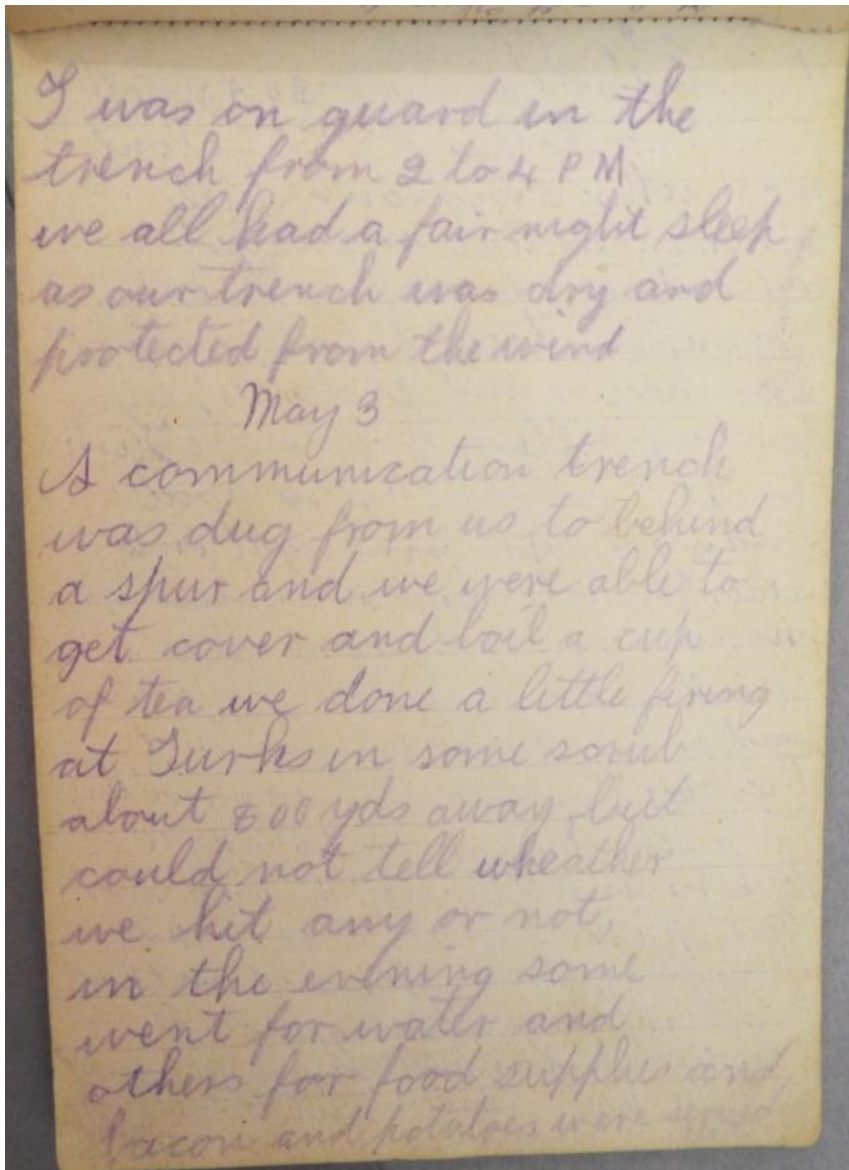 I was on guard in the
trench from 2 to 4 PM
we all had a fair night sleep
as our trench was dry and
protected from the wind
May 3
A communication trench
was dug from us to behind
a spur and we were able to
get cover and boil a cup
of tea we done a little firing
at Turks in some scrub
about 800 yds away, but
could not tell wheather
we hit any or not,
in the evening some
went for water and
others for food supplies and
bacon and potatoes were